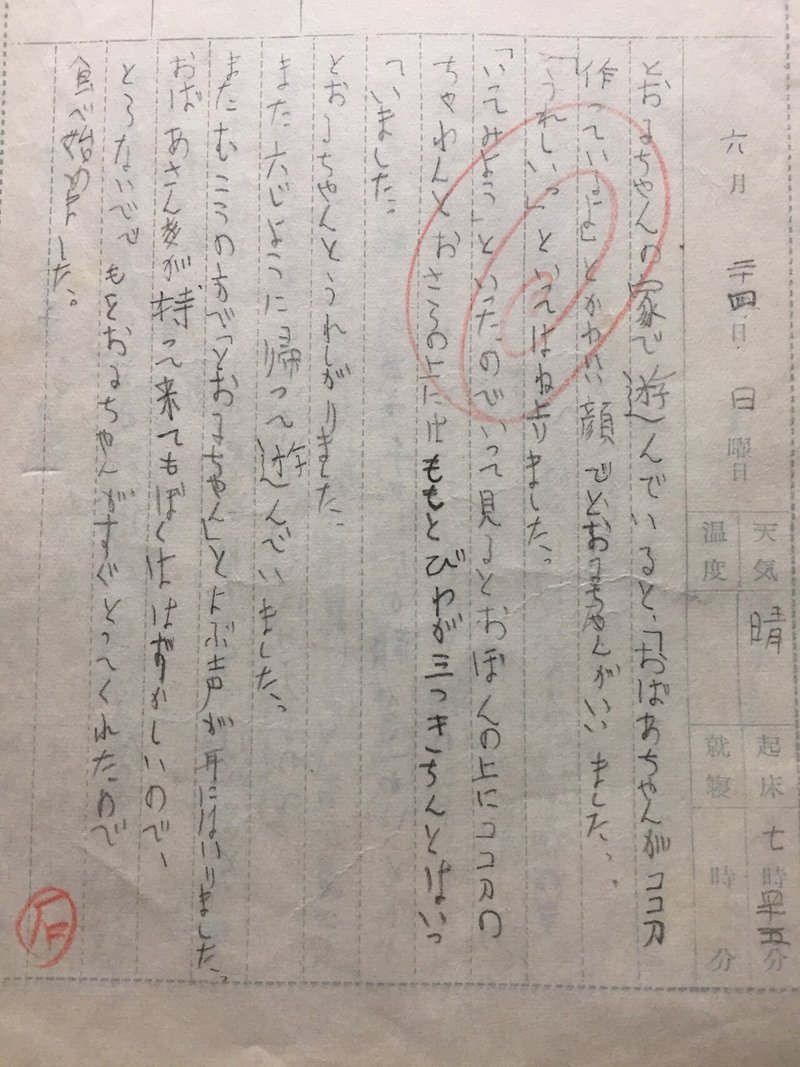 六月 二十四日 日曜日 天気 晴 起床 七時 五分
温度 就寝 時 分
とおるちゃんの家で遊んでいると、「おばあちゃんがココア
作っているよ」とかわいい顔でとおるちゃんがいいました。
「うれしいっ」といってはね上りました。
「いってみよう」といったのでいって見るとおぼんの上にココアの
ちゃわんとおさらの上にももとびわが三つきちんとはいっ
ていました。
とおるちゃんとうれしがりました。
また六じように帰って遊んでいました。
またむこうの方で「とおるちゃん」とよぶ声が耳にはいりました。
おばあさんが持って来てもぼくははずかしいので、
とらないでもとおるちゃんがすぐとってくれたので
食べ始めました。